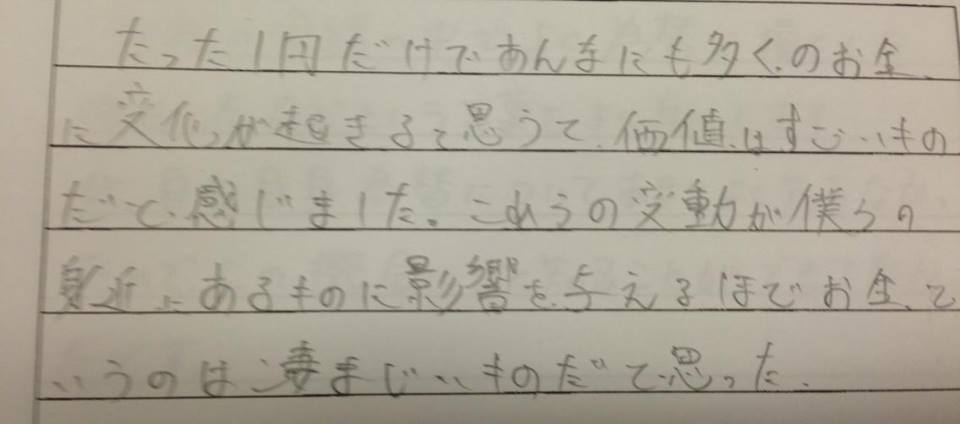 たった1円だけであんなにも多くのお金
に変化が起きると思うて、価値はすごいもの
だと、感じました。これらの変動が僕らの
身近にあるものに影響を与えるほどお金、と
いうのは凄まじいものだと思った。